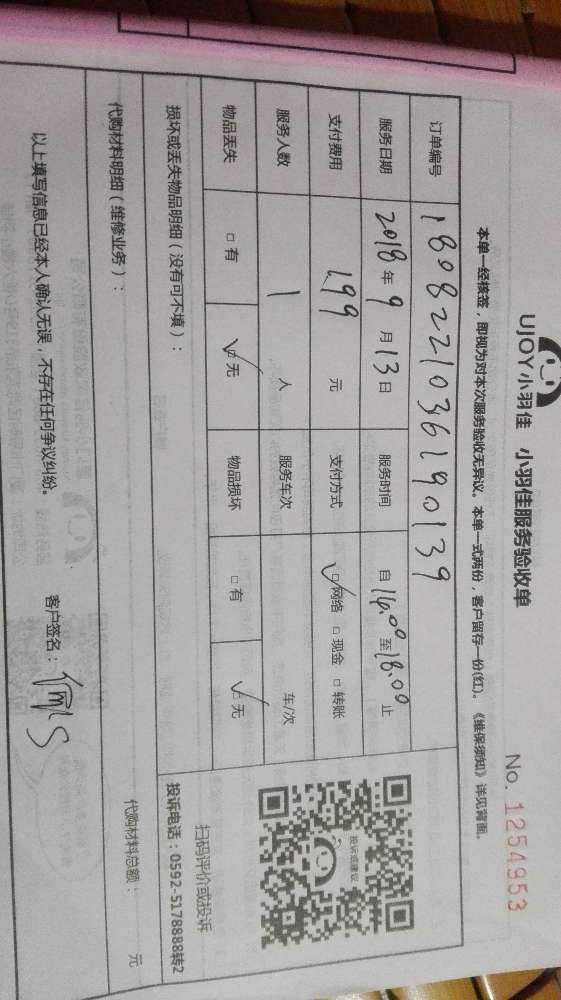 UJOY小羽佳 小羽佳服务验收单
No. 1254953
本单一经核签，即视为对本次服务验收无异议。本单一式两份，客户留存一份(红)。《维保须知》详见背面。
订单编号 180822103619 0139
服务日期 2018年9月13日 服务时间 自16:00至18:00止
支付费用 199元 支付方式 ☑网络 □现金 □转账
服务人数 1人 服务车次 车/次
物品丢失 □有 ☑无 物品损坏 □有 ☑无
投诉或建议
扫码评价或投诉
投诉电话：0592-5178888转2
损坏或丢失物品明细（没有可不填）：
代购材料明细（维修业务）：
代购材料总额： 元
以上填写信息已经本人确认无误，不存在任何争议纠纷。 客户签名：